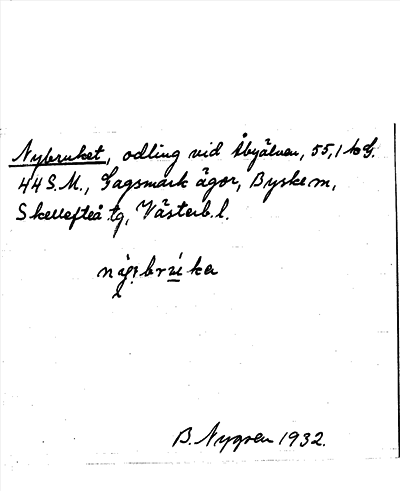 Nybruket, odling vid Åbyälven, 55,1 h G.
44 S.M., Gagsmark ägor, Byske m,
Skellefteå tg, Västerb. l.
B. Nygren 1932.